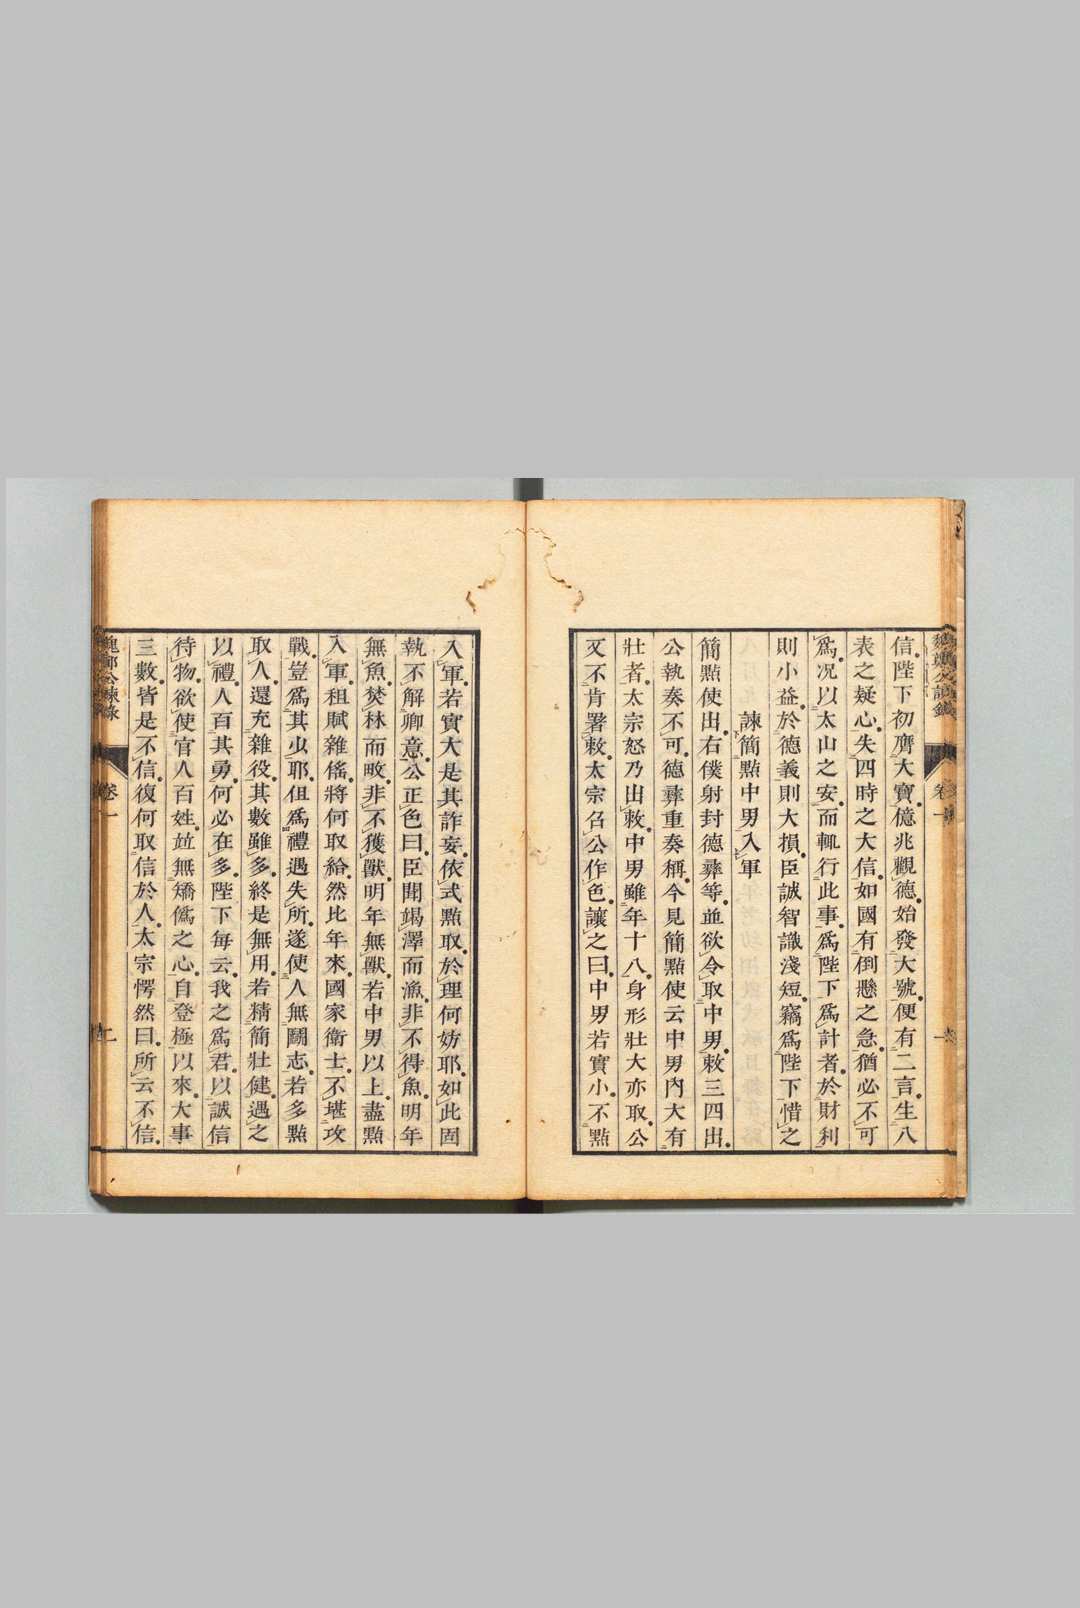 信陛下初膺大寶億兆觀德始發大號便有二言生八
表之疑心失四時之大信如國有倒懸之急猶必不可
爲况以太山之安而輒行此事爲陛下爲計者於財利
則小益於德義則大損臣誠智識淺短竊爲陛下惜之
諫簡點中男入軍
簡點使出右僕射封德彝等並欲令取中男敕三四出
公執奏不可德彝重奏稱今見簡點使云中男內大有
壯者太宗怒乃出敕中男雖年十八身形壯大亦取公
又不肯署敕太宗召公作色讓之曰中男若實小不點
入軍若實大是其詐妄依式點取於理何妨耶如此固
執不解卿意公正色曰臣聞竭澤而漁非不得魚明年
無魚焚林而畋非不獲獸明年無獸若中男以上盡點
入軍租賦雜傜將何取給然比年來國家衛士不堪攻
戰豈爲其少耶但爲禮遇失所遂使人無鬭志若多點
取人還充雜役其數雖多終是無用若精簡壯健遇之
以禮人百其勇何必在多陛下每云我之爲君以誠信
待物欲使官人百姓並無矯僞之心自登極以來大事
三數皆是不信復何取信於人太宗愕然曰所云不信
魏鄭公諫錄
卷一
二